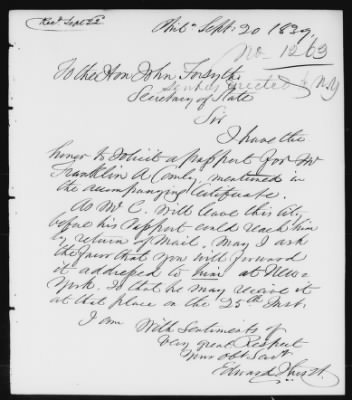 Recd Sept 22
Phila Sept. 20 1839.
No 1263
To the Hon John Forsyth
Sent directed to N.Y
Secretary of State
Sir
I have the
honor to solicit a passport for Mr
Franklin A Comly, mentioned in
the accompanying Certificate.
As Mr C. will leave this City
before his Passport could reach him
by return of Mail, May I ask
the favor that you will forward
it addressed to him at New
York. So that he may receive it
at that place on the 25th Inst.
I am With Sentiments of
Very great Respect
Your Obt Servt
Edward